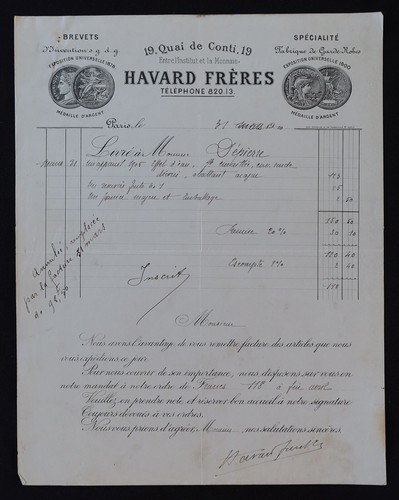 BREVETS
D'Invention s.g.d.g.
EXPOSITION UNIVERSELLE 1878
MÉDAILLE D'ARGENT
19, Quai de Conti, 19
Entre l'Institut et la Monnaie
HAVARD FRÈRES
TÉLÉPHONE 820.13.
SPÉCIALITÉ
Fabrique de Garde-Robes
EXPOSITION UNIVERSELLE 1900
MÉDAILLE D'ARGENT
Paris, le 31 mars
Livré à Monsieur Dépierre
mars 31 Un appareil 905 effet d'eau
abattant acajou 133
15
et emballage 2 50
150 50
Remise 20% 30 10
120 40
Escompte 2% 2 40
118
Annulée, remplacée
par la facture 31 mars
de 98,50
Inscrit
Monsieur
Nous avons l'avantage de vous remettre facture des articles que nous
vous expédions ce jour.
Pour nous couvrir de son importance, nous disposons sur vous en
notre mandat à notre ordre de Francs 118 à fin avril
Veuillez en prendre note et réserver bon accueil à notre signature
Toujours dévoués à vos ordres.
Nous vous prions d'agréer, Monsieur, nos salutations sincères
Havard frères